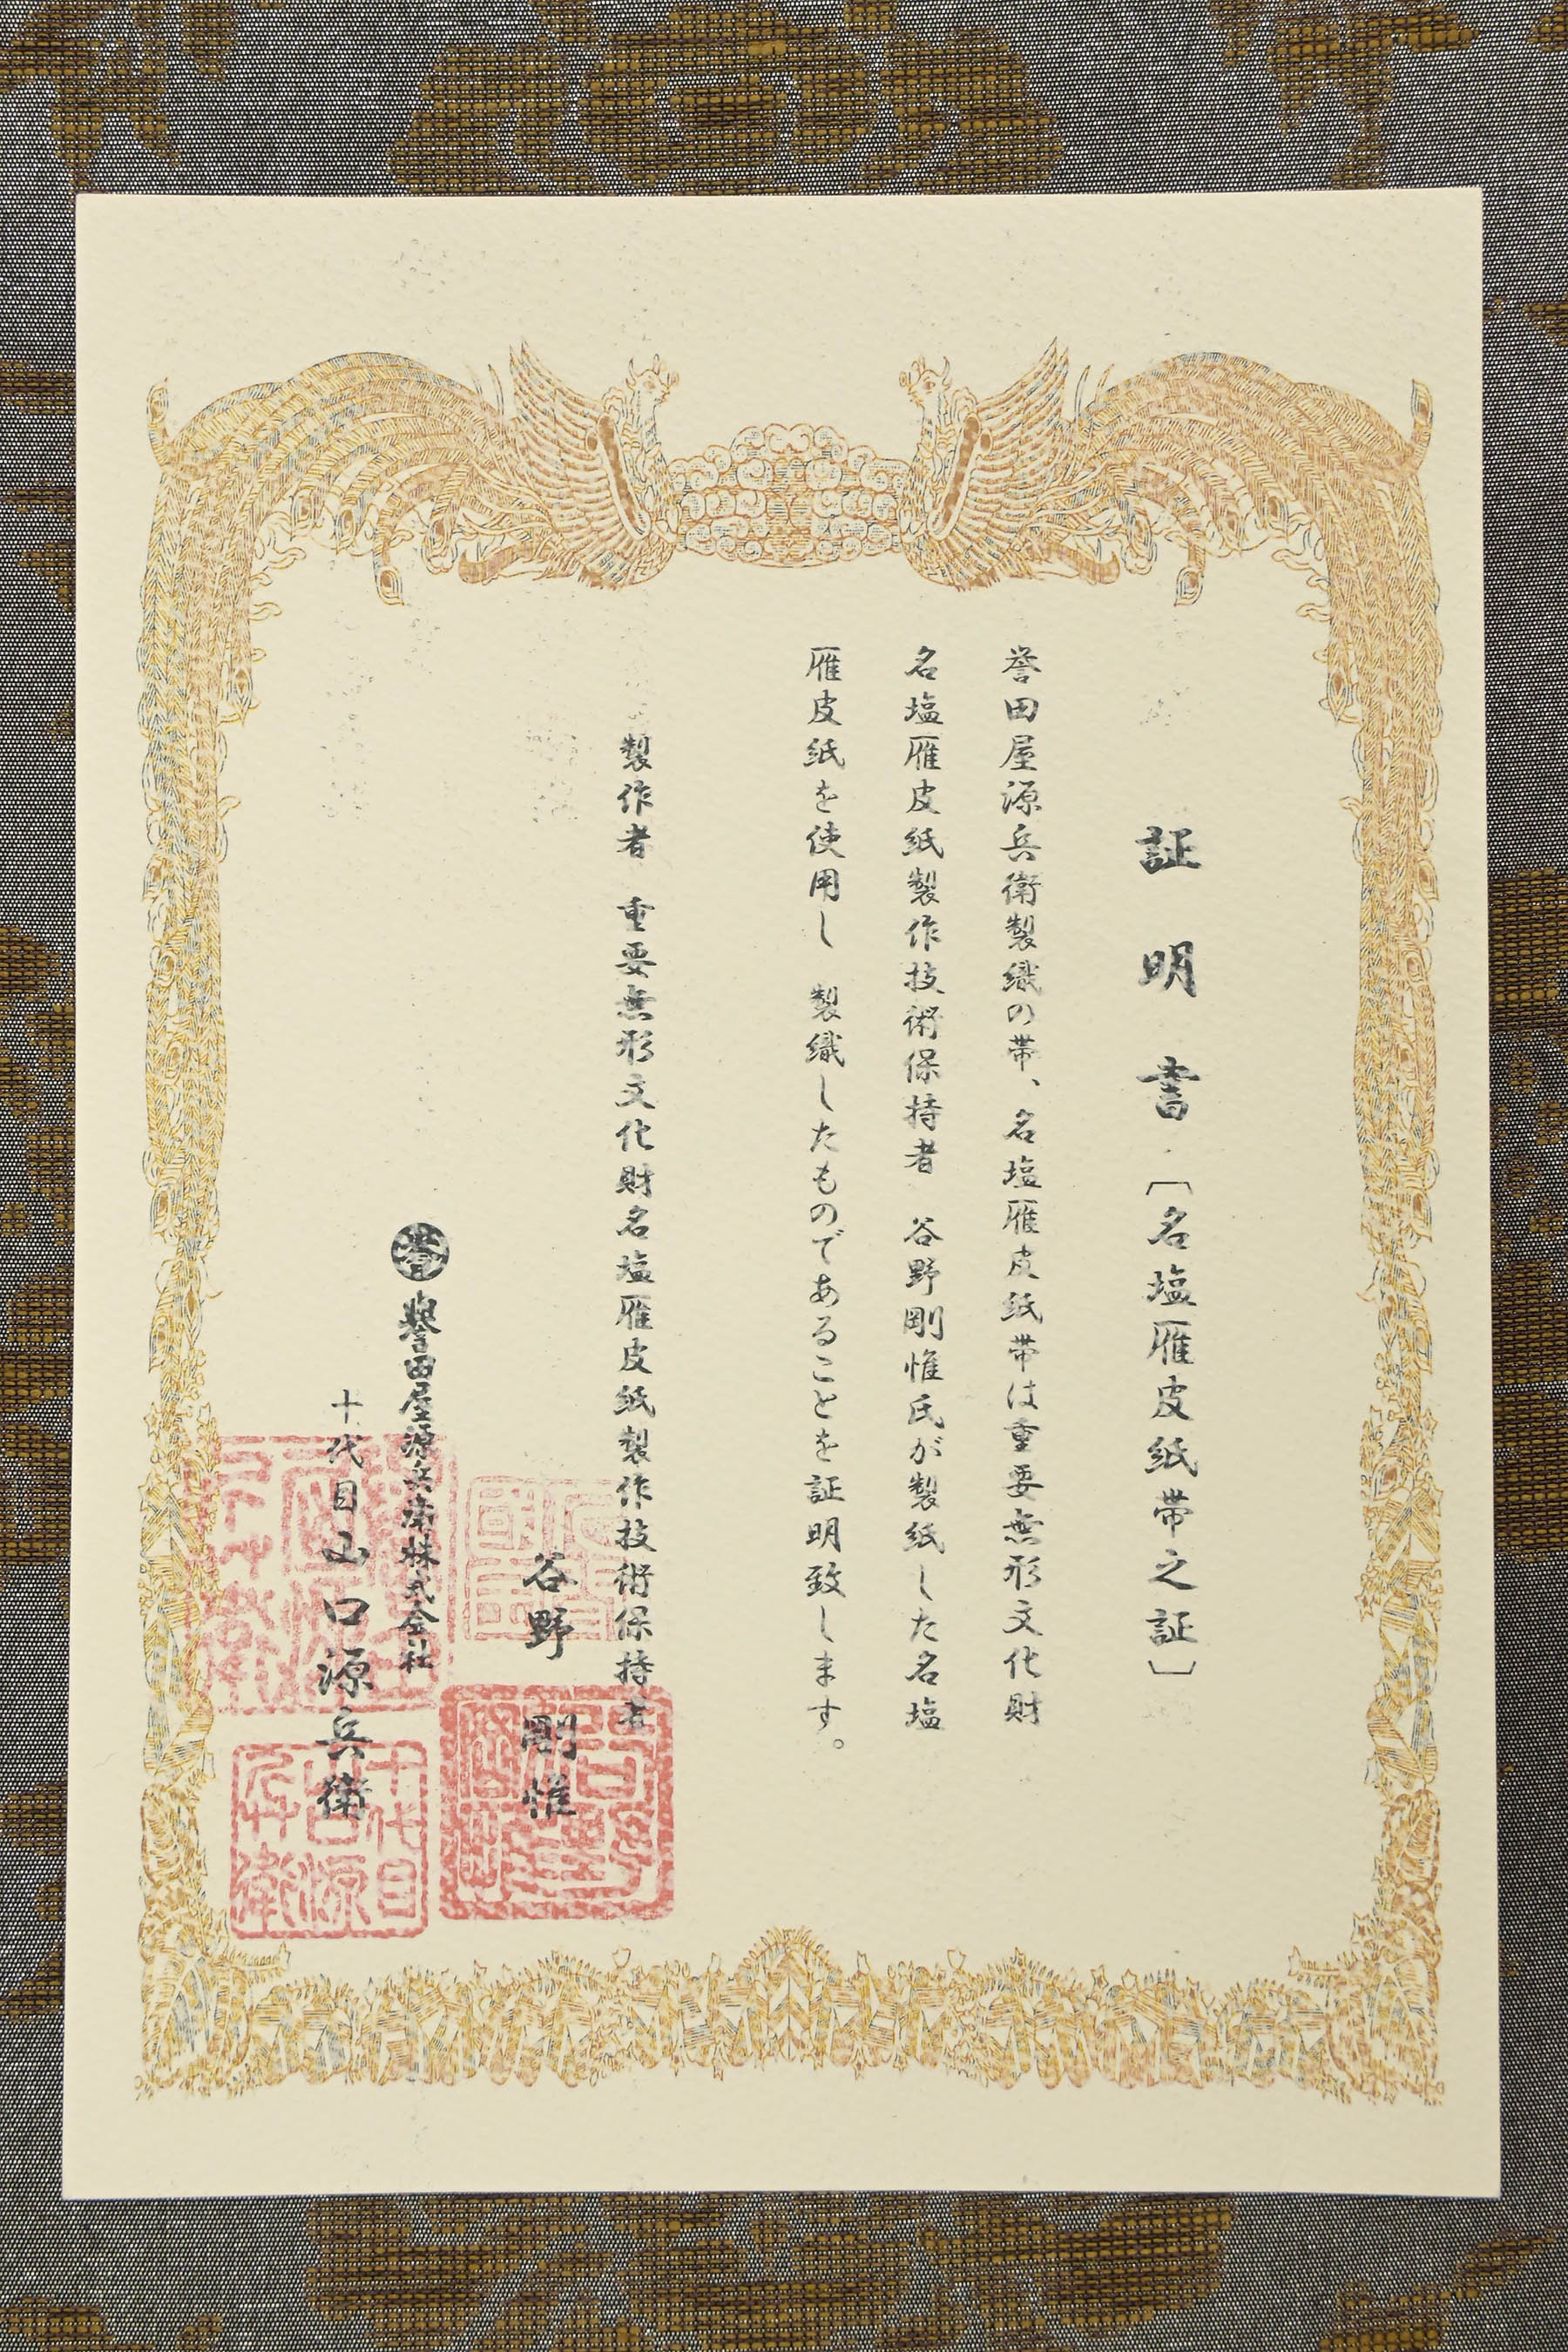 証明書〔名塩雁皮紙帯之証〕
誉田屋源兵衛製織の帯、名塩雁皮紙帯は重要無形文化財
名塩雁皮紙製作技術保持者 谷野剛惟氏が製紙した名塩
雁皮紙を使用し 製織したものであることを証明致します。
製作者 重要無形文化財名塩雁皮紙製作技術保持者
谷野 剛惟
誉 譽田屋源兵衛株式会社
十代目山口源兵衛
十代目山口源兵衛